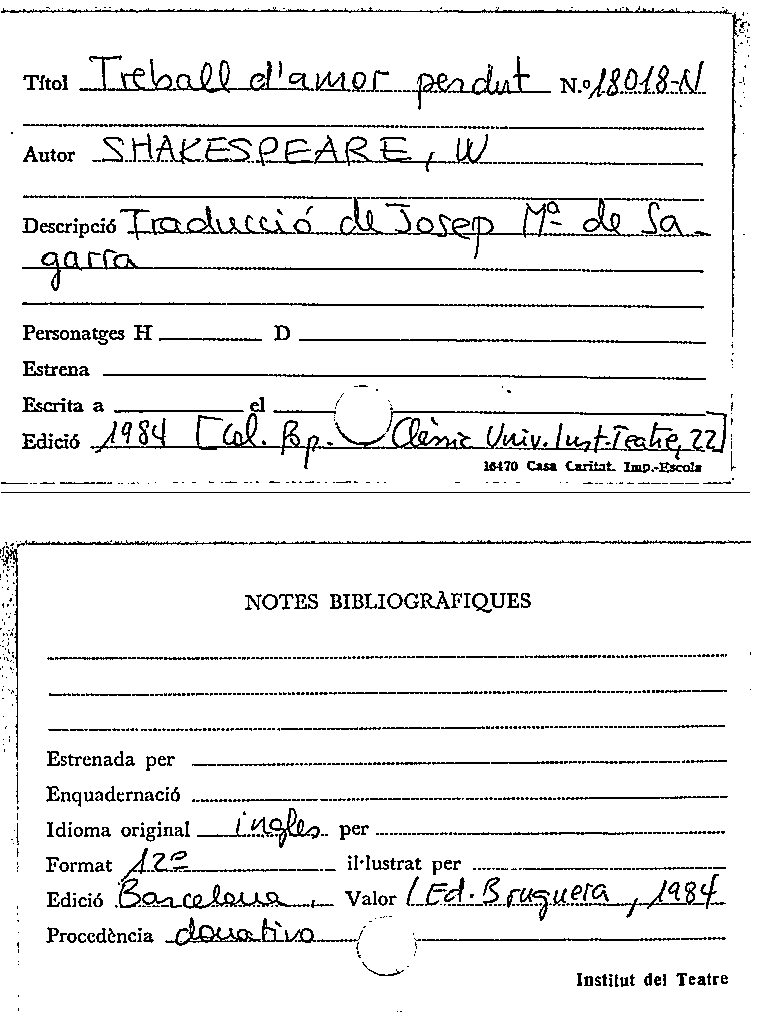 Títol Treball d'amor perdut N.º 18018-N
Autor SHAKESPEARE, W
Descripció Traducció de Josep Mª de Sa-
garra
Personatges H D
Estrena
Escrita a el
Edició 1984 [Col. Pop. Clàssic Univ. Inst. Teatre, 22]
16470 Casa Caritat. Imp.-Escola
NOTES BIBLIOGRÀFIQUES
Estrenada per
Enquadernació
Idioma original ingles per
Format 12º il·lustrat per
Edició Barcelona, Valor / Ed. Bruguera, 1984
Procedència donativo
Institut del Teatre